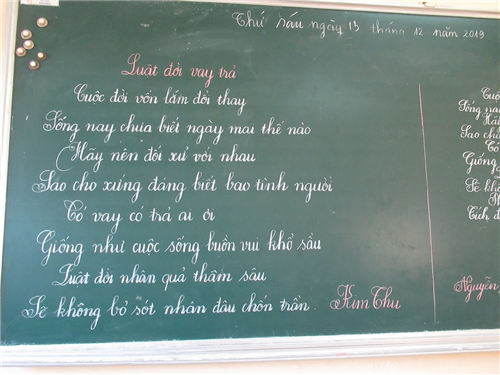 Thứ sáu ngày 13 tháng 12 năm 2019
Luật đời vay trả
Cuộc đời vốn lắm đổi thay
Sống nay chưa biết ngày mai thế nào
Hãy nên đối xử với nhau
Sao cho xứng đáng biết bao tình người
Có vay có trả ai ơi
Giống như cuộc sống buồn vui khổ sầu
Luật đời nhân quả thâm sâu
Sẽ không bỏ sót nhân đâu chốn trần.
Kim Thu
Cuộ
Sống na
Hã
Sao ch
Có
Giống
Sẽ khô
Tích đ
Nguyễn